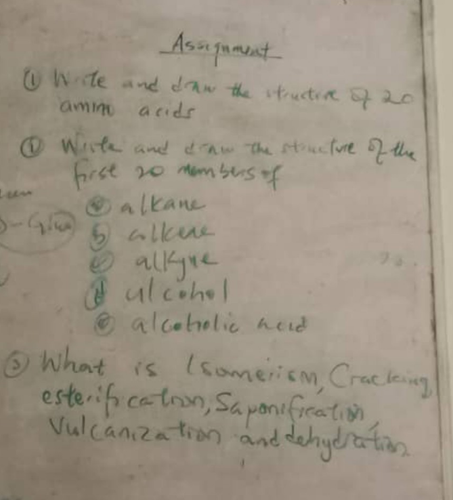 Assignment
① Write and draw the structure of 20
amino acids
① Write and draw the structure of the
first 20 members of
ⓐ alkane
ⓑ alkene
ⓒ alkyne
ⓓ alcohol
ⓔ alcoholic acid
③ What is Isomerism, Cracking,
esterification, Saponification,
Vulcanization and dehydration